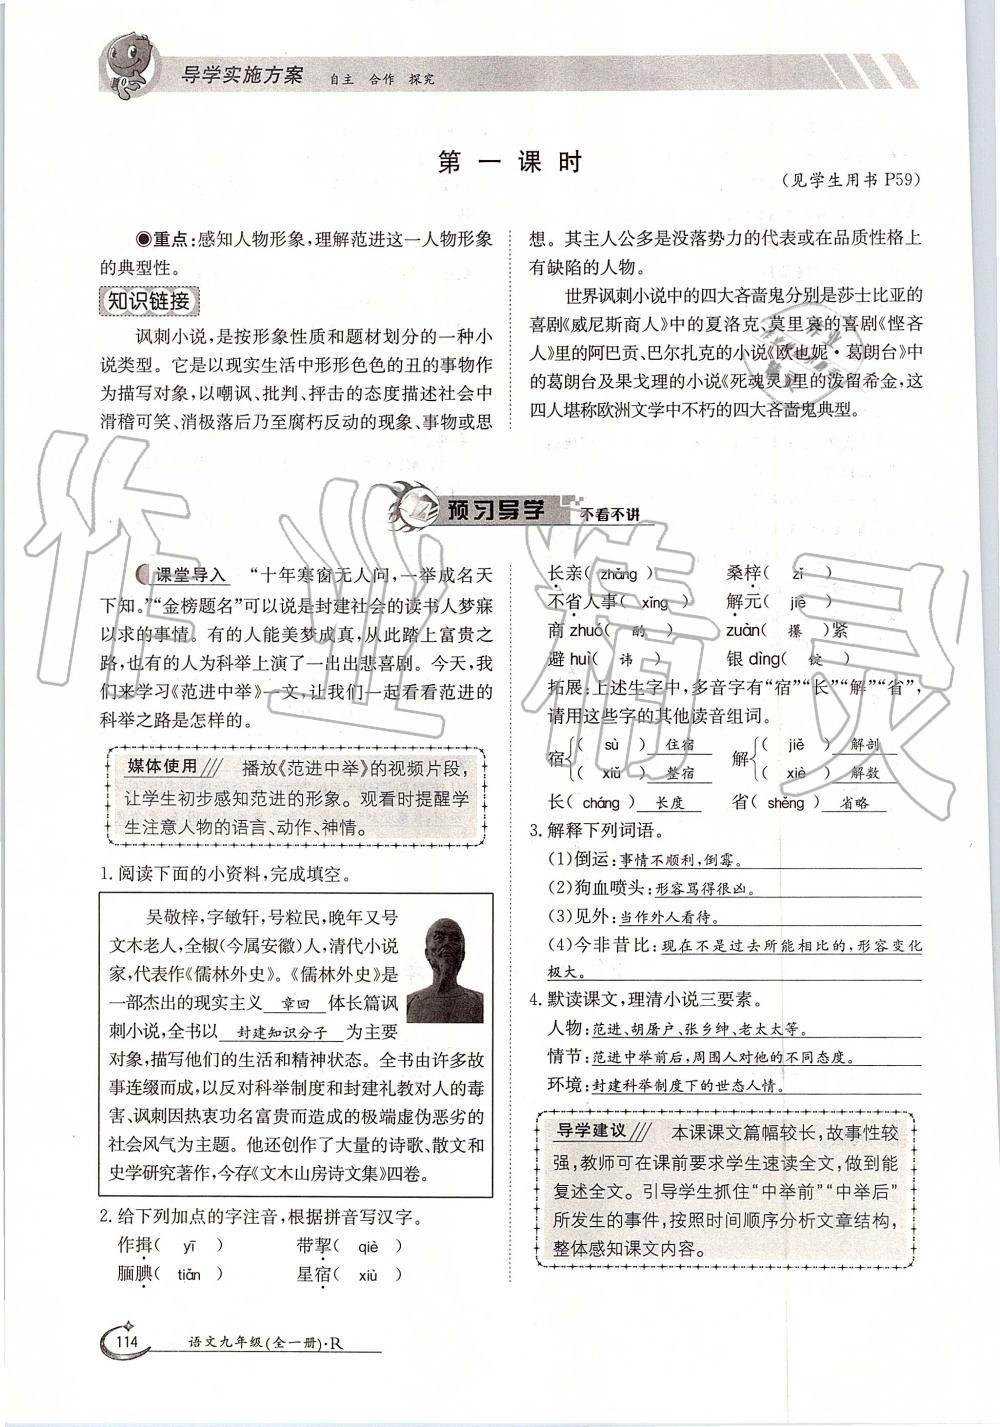 导学实施方案 自主 合作 探究
第一课时
(见学生用书 P59)
◉重点:感知人物形象,理解范进这一人物形象
的典型性。
知识链接
讽刺小说,是按形象性质和题材划分的一种小
说类型。它是以现实生活中形形色色的丑的事物作
为描写对象,以嘲讽、批判、抨击的态度描述社会中
滑稽可笑、消极落后乃至腐朽反动的现象、事物或思
想。其主人公多是没落势力的代表或在品质性格上
有缺陷的人物。
世界讽刺小说中的四大吝啬鬼分别是莎士比亚的
喜剧《威尼斯商人》中的夏洛克、莫里哀的喜剧《悭吝
人》里的阿巴贡、巴尔扎克的小说《欧也妮·葛朗台》中
的葛朗台及果戈理的小说《死魂灵》里的泼留希金,这
四人堪称欧洲文学中不朽的四大吝啬鬼典型。
预习导学 不看不讲
课堂导入 “十年寒窗无人问,一举成名天
下知。”“金榜题名”可以说是封建社会的读书人梦寐
以求的事情。有的人能美梦成真,从此踏上富贵之
路,也有的人为科举上演了一出出悲喜剧。今天,我
们来学习《范进中举》一文,让我们一起看看范进的
科举之路是怎样的。
媒体使用 播放《范进中举》的视频片段,
让学生初步感知范进的形象。观看时提醒学
生注意人物的语言、动作、神情。
1. 阅读下面的小资料,完成填空。
吴敬梓,字敏轩,号粒民,晚年又号
文木老人,全椒(今属安徽)人,清代小说
家,代表作《儒林外史》。《儒林外史》是
一部杰出的现实主义 章回 体长篇讽
刺小说,全书以 封建知识分子 为主要
对象,描写他们的生活和精神状态。全书由许多故
事连缀而成,以反对科举制度和封建礼教对人的毒
害、讽刺因热衷功名富贵而造成的极端虚伪恶劣的
社会风气为主题。他还创作了大量的诗歌、散文和
史学研究著作,今存《文木山房诗文集》四卷。
2. 给下列加点的字注音,根据拼音写汉字。
作揖( yī ) 带挈( qiè )
腼腆( tiǎn ) 星宿( xiù )
长亲( zhǎng ) 桑梓( zǐ )
不省人事( xǐng ) 解元( jiè )
商 zhuó( 酌 ) zuàn( 攥 )紧
避 huì( 讳 ) 银 dìng( 锭 )
拓展:上述生字中,多音字有“宿”“长”“解”“省”,
请用这些字的其他读音组词。
宿{( sù ) 住宿 解{( jiě ) 解剖
( xiǔ ) 整宿 ( xiè ) 解数
长( cháng ) 长度 省( shěng ) 省略
3. 解释下列词语。
(1)倒运:事情不顺利,倒霉。
(2)狗血喷头:形容骂得很凶。
(3)见外:当作外人看待。
(4)今非昔比:现在不是过去所能相比的,形容变化
极大。
4. 默读课文,理清小说三要素。
人物:范进、胡屠户、张乡绅、老太太等。
情节:范进中举前后,周围人对他的不同态度。
环境:封建科举制度下的世态人情。
导学建议 本课课文篇幅较长,故事性较
强,教师可在课前要求学生速读全文,做到能
复述全文。引导学生抓住“中举前”“中举后”
所发生的事件,按照时间顺序分析文章结构,
整体感知课文内容。
114 语文九年级(全一册)·R
作业精灵